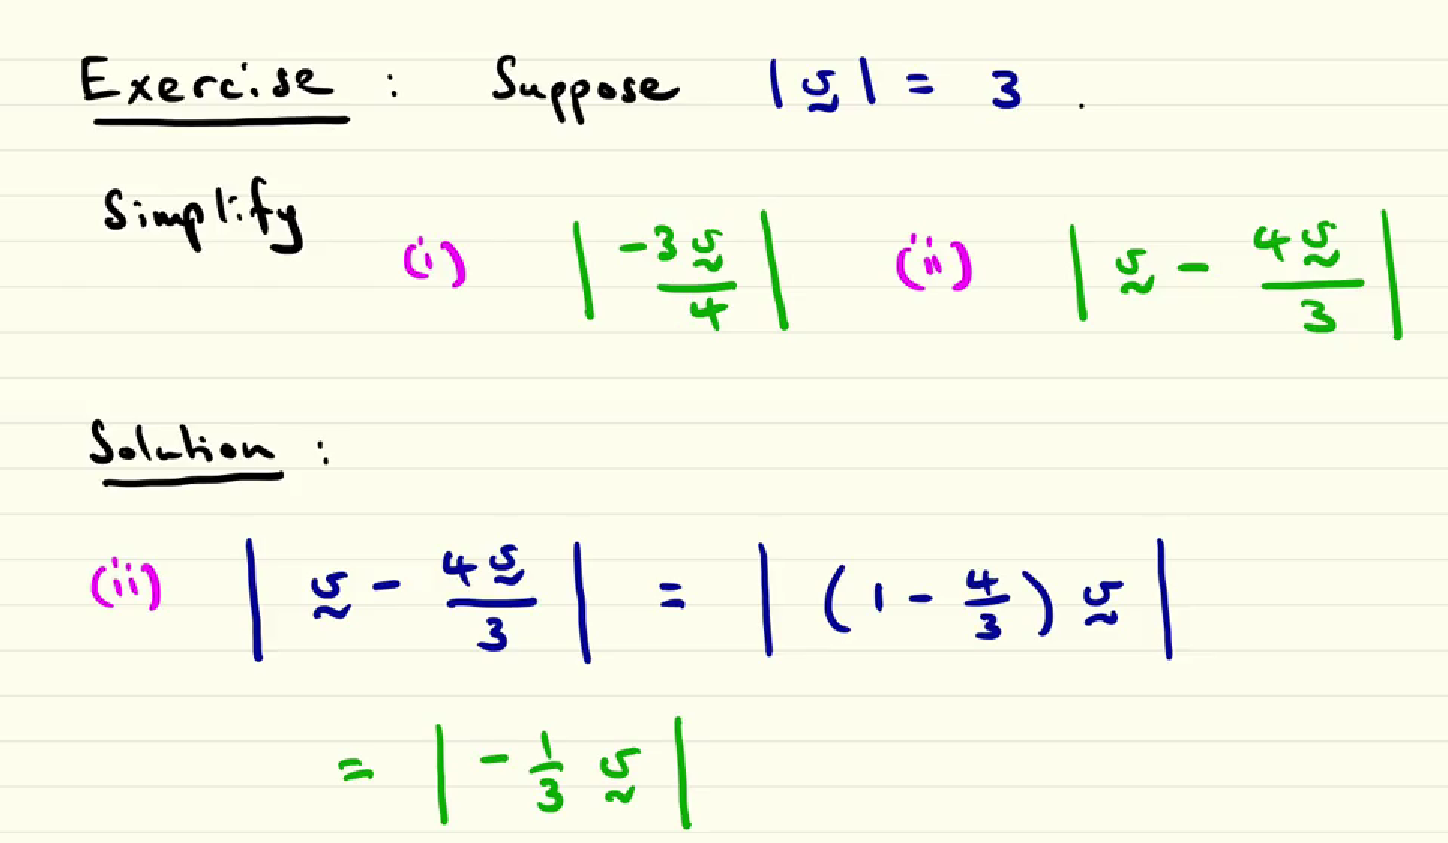 Exercise : Suppose |v̰| = 3 .
Simplify (i) | -3v̰/4 | (ii) | v̰ - 4v̰/3 |
Solution :
(ii) | v̰ - 4v̰/3 | = | (1 - 4/3) v̰ |
= | - 1/3 v̰ |